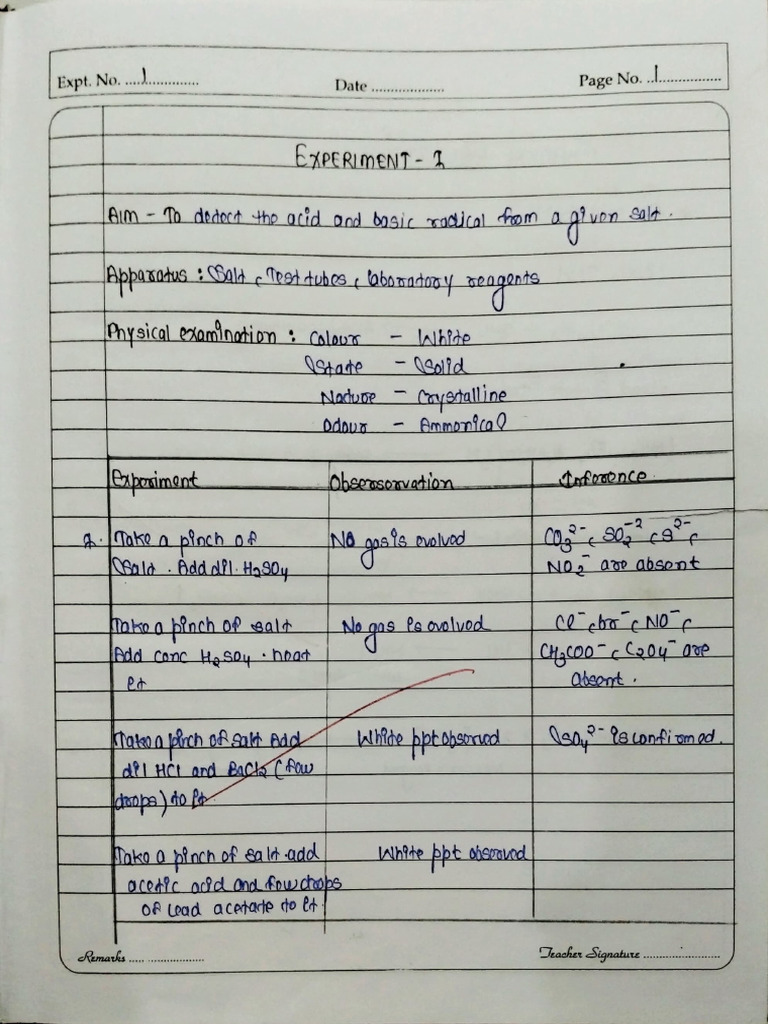 Expt. No. ....1.............. Date ................... Page No. ..1................
EXPERIMENT - 1
Aim - To detect the acid and basic radical from a given salt.
Apparatus : Salt, Test tubes, laboratory reagents
Physical examination : Colour - White
State - Solid
Nature - Crystalline
Odour - Ammonical
Experiment Obserservation Inference
1. Take a pinch of No gas is evolved CO₃²⁻, SO₂⁻², S²⁻,
Salt. Add dil. H₂SO₄ NO₂⁻ are absent
Take a pinch of salt No gas is evolved Cl⁻, br⁻, NO⁻,
Add conc H₂SO₄. heat CH₃COO⁻, C₂O₄⁻ are
it absent.
Take a pinch of salt add White ppt observed SO₄²⁻ is confirmed.
dil HCl and BaCl₂ (few
drops) to it
Take a pinch of salt add White ppt observed
acetic acid and few drops
of lead acetate to it.
Remarks ..... .................. Teacher Signature .........................